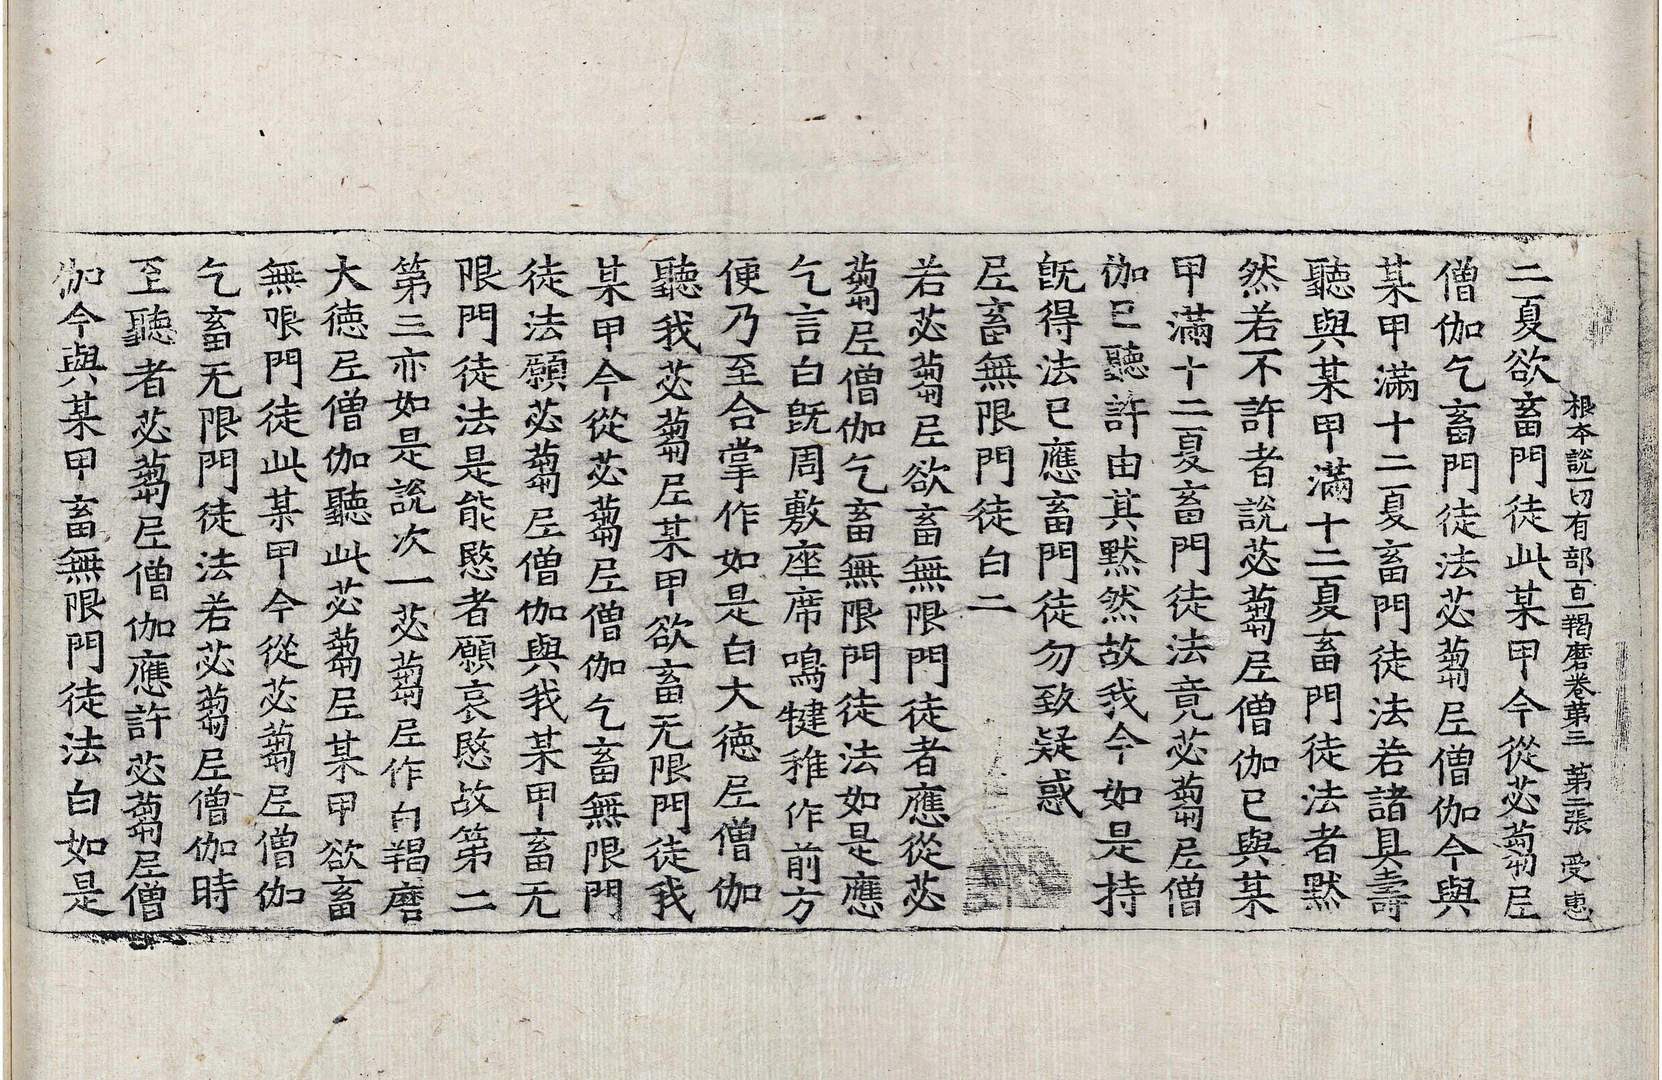 根本說一切有部百一羯磨卷第三　第三張　受惠
二夏欲畜門徒此某甲今從苾蒭尼
僧伽乞畜門徒法苾蒭尼僧伽今與
某甲滿十二夏畜門徒法若諸具壽
聽與某甲滿十二夏畜門徒法者默
然若不許者說苾蒭尼僧伽已與某
甲滿十二夏畜門徒法竟苾蒭尼僧
伽已聽許由其默然故我今如是持
旣得法已應畜門徒勿致疑惑
尼畜無限門徒白二
若苾蒭尼欲畜無限門徒者應從苾
蒭尼僧伽乞畜無限門徒法如是應
乞言白旣周敷座席鳴犍稚作前方
便乃至合掌作如是白大德尼僧伽
聽我苾蒭尼某甲欲畜无限門徒我
某甲今從苾蒭尼僧伽乞畜無限門
徒法願苾蒭尼僧伽與我某甲畜无
限門徒法是能愍者願哀愍故第二
第三亦如是說次一苾蒭尼作白羯磨
大德尼僧伽聽此苾蒭尼某甲欲畜
無限門徒此某甲今從苾蒭尼僧伽
乞畜无限門徒法若苾蒭尼僧伽時
至聽者苾蒭尼僧伽應許苾蒭尼僧
伽今與某甲畜無限門徒法白如是